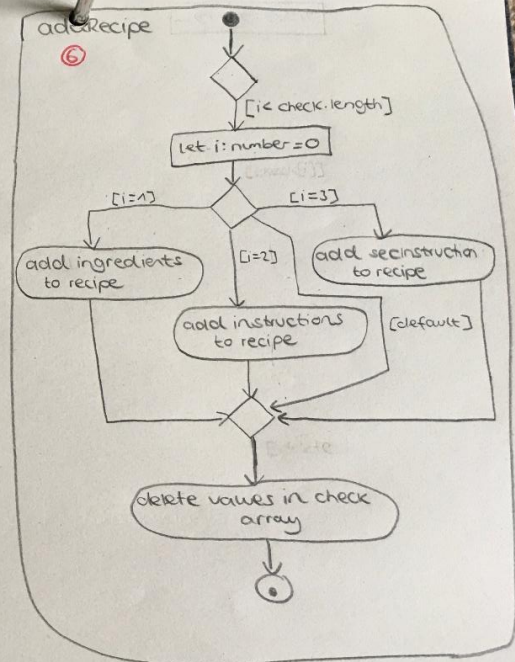 addRecipe
6
[i< check.length]
let i:number=0
[i=1]
[i=3]
add ingredients
to recipe
[i=2]
add secinstruction
to recipe
add instructions
to recipe
[default]
delete values in check
array